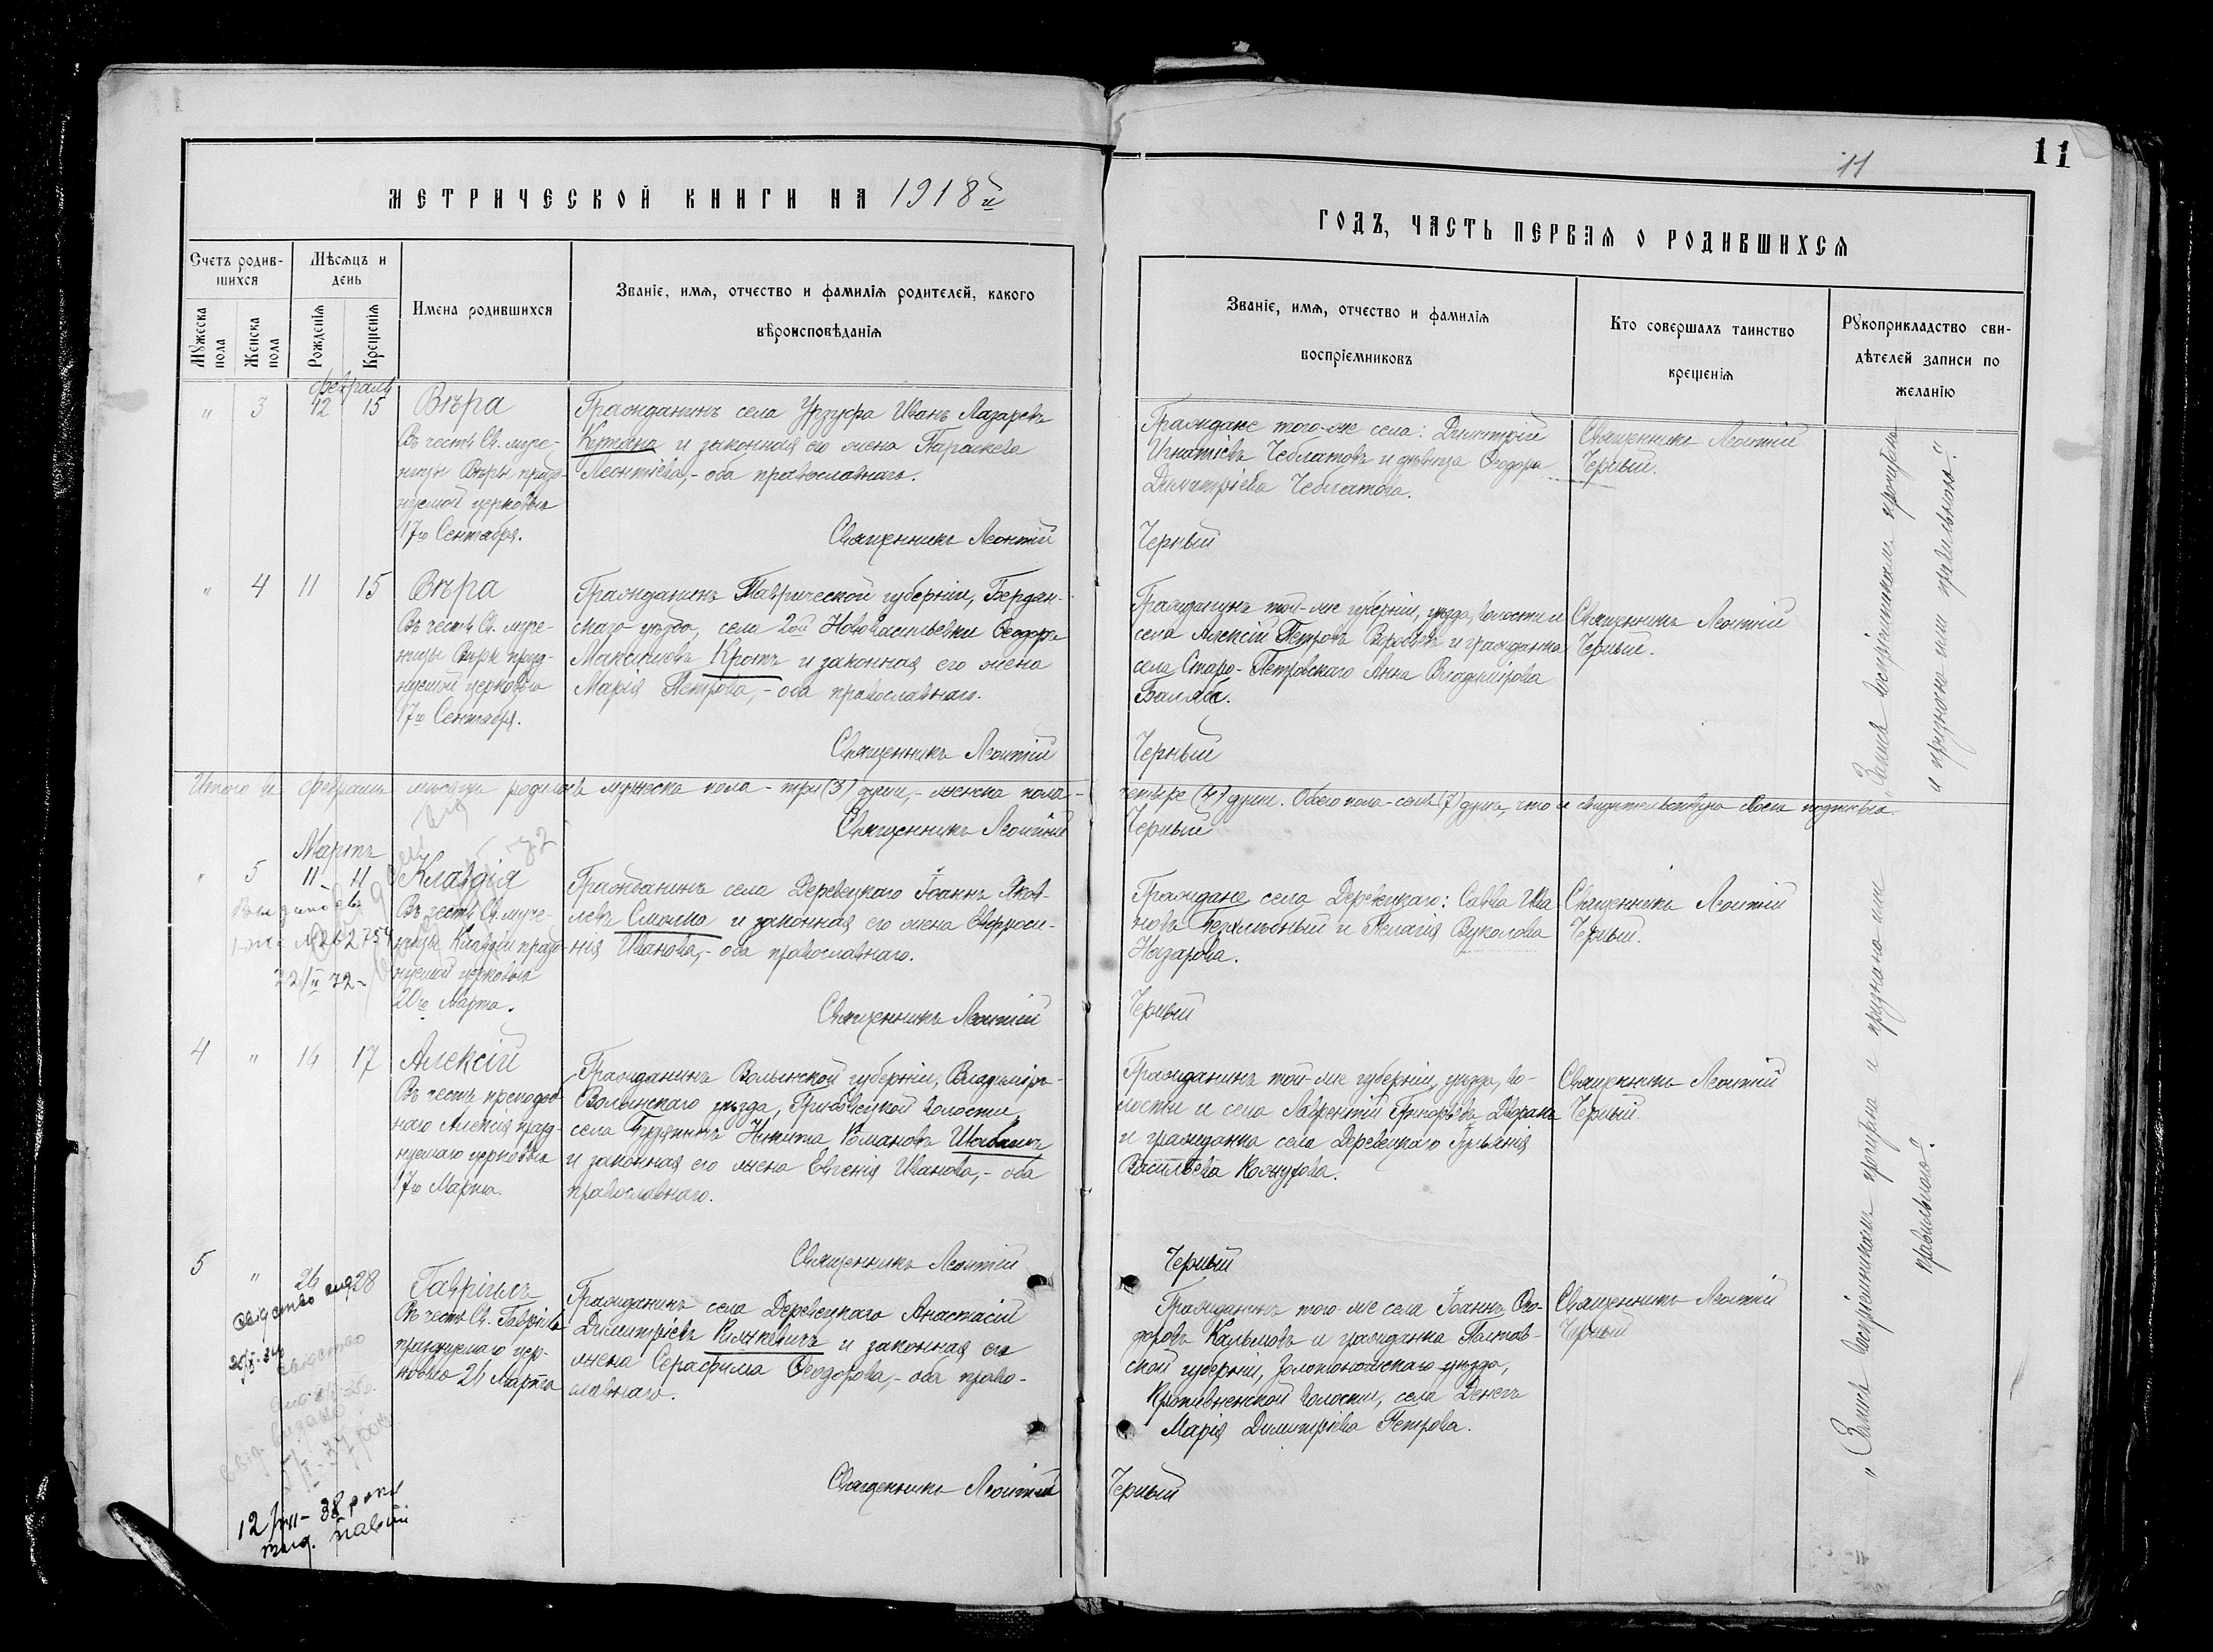 11
11
МЕТРИЧЕСКОЙ КНИГИ НА 1918й
ГОДЪ, ЧАСТЬ ПЕРВАЯ О РОДИВШИХСЯ
Счетъ родив-
шихся
Мѣсяцъ и
день
Имена родившихся
Званіе, имя, отчество и фамилія родителей, какого
вѣроисповѣданія
Мужеска
пола
Женска
пола
Рожденія
Крещенія
Званіе, имя, отчество и фамилія
воспріемниковъ
Кто совершалъ таинство
крещенія
Рукоприкладство сви-
дѣтелей записи по
желанію
Февраль
" 3 12 15
Вѣра
Въ честь Св. муче-
ницы Вѣры празд-
нуемой церковью
17го Сентября.
Гражданинъ села Урзуфа Иванъ Лазаревъ
и законная его жена Параскева
Леонтіева,- оба православнаго.
Священникъ Леонтій
Граждане того-же села: Димитрій
Игнатіевъ Чеблатовъ и дѣвица Ѳеодора
Димитріева Чеблатова.
Черный
Священникъ Леонтій
Черный.
" 4 11 15
Вѣра
Въ честь Св. муче-
ницы Вѣры празд-
нуемой церковью
17го Сентября.
Гражданинъ Таврической губерніи, Бердян-
скаго уѣзда, села 2ой Нововасильевки Ѳеодоръ
Максимовъ Кротъ и законная его жена
Марія Петрова,- оба православнаго.
Священникъ Леонтій
Гражданинъ той-же губерніи, уѣзда, волости и
села Алексій Петровъ Воробьевъ и гражданка
села Старо-Петровскаго Анна Владимірова
Балаба.
Черный
Священникъ Леонтій
Черный.
Итого въ Февралѣ мѣсяцѣ родилось мужеска пола - три (3) души,- женска пола -
четыре (4) души. Обоего пола - семь (7) душъ, что и свидѣтельствую своею подписью.
Священникъ Леонтій
Черный
Мартъ
" 5 11 11
Клавдія
Въ честь Св. муче-
ницы Клавдіи празд-
нуемой церковью
20го Марта.
22/II 72
Гражданинъ села Деревецкаго Іоаннъ Яков-
левъ Смолко и законная его жена Евфроси-
нія Иванова,- оба православнаго.
Священникъ Леонтій
Граждане села Деревецкаго: Савва Ива
новъ и Пелагія Вуколова
Назарова.
Черный
Священникъ Леонтій
Черный.
4 " 14 17
Алексій
Въ честь преподоб
наго Алексія празд-
нуемаго церковью
17го Марта.
Гражданинъ Волынской губерніи, Владиміръ-
Волынскаго уѣзда, Грибовецкой волости,
села Никита Романовъ
и законная его жена Евгенія Иванова,- оба
православнаго.
Священникъ Леонтій
Гражданинъ той-же губерніи, уѣзда, во-
лости и села Лаврентій Григорьевъ
и гражданка села Деревецкаго
Васильева
Черный
Священникъ Леонтій
Черный.
5 " 26 28
Гавріилъ
Въ честь Св. Гавріила
празднуемаго цер-
ковью 26 Марта
Гражданинъ села Деревецкаго Анастасій
Димитріевъ и законная его
жена Серафима Ѳеодорова,- оба право-
славнаго.
Священникъ Леонтій
Гражданинъ того-же села Іоаннъ Ѳео-
доровъ Калмыковъ и гражданка Полтав-
ской губерніи, Золотоношскаго уѣзда,
Кропивненской волости, села
Марія Димитріева Петрова.
Черный
Священникъ Леонтій
Черный
12/VII-38 року
"Запись воспріемникамъ прочитана
и признана ими правильною."
"Запись воспріемникамъ прочитана и признана ими
правильною."